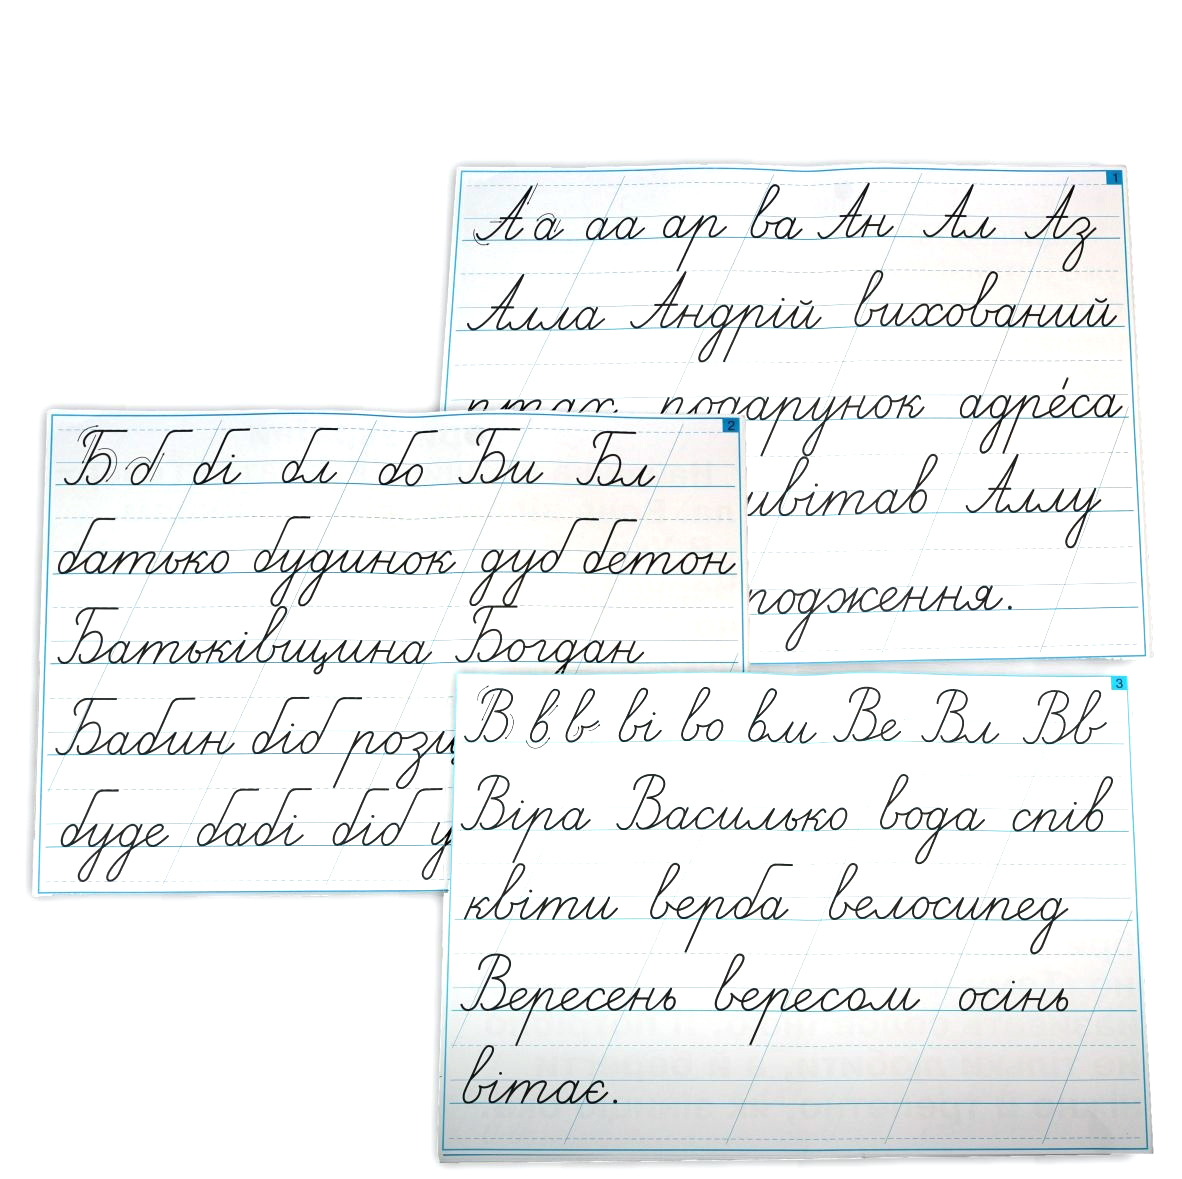 1
Аа аа ар ва Ан Ал Аз
Алла Андрій вихований
птах подарунок адре́са
Аллу
2
Бб бі бл бо Би Бл
батько будинок дуб бетон
Батьківщина Богдан
Бабин біб
буде бабі біб
3
В в в ві во вм Ве Вл Вв
Віра Василько вода спів
квіти верба велосипед
Вересень вересом осінь
вітає.